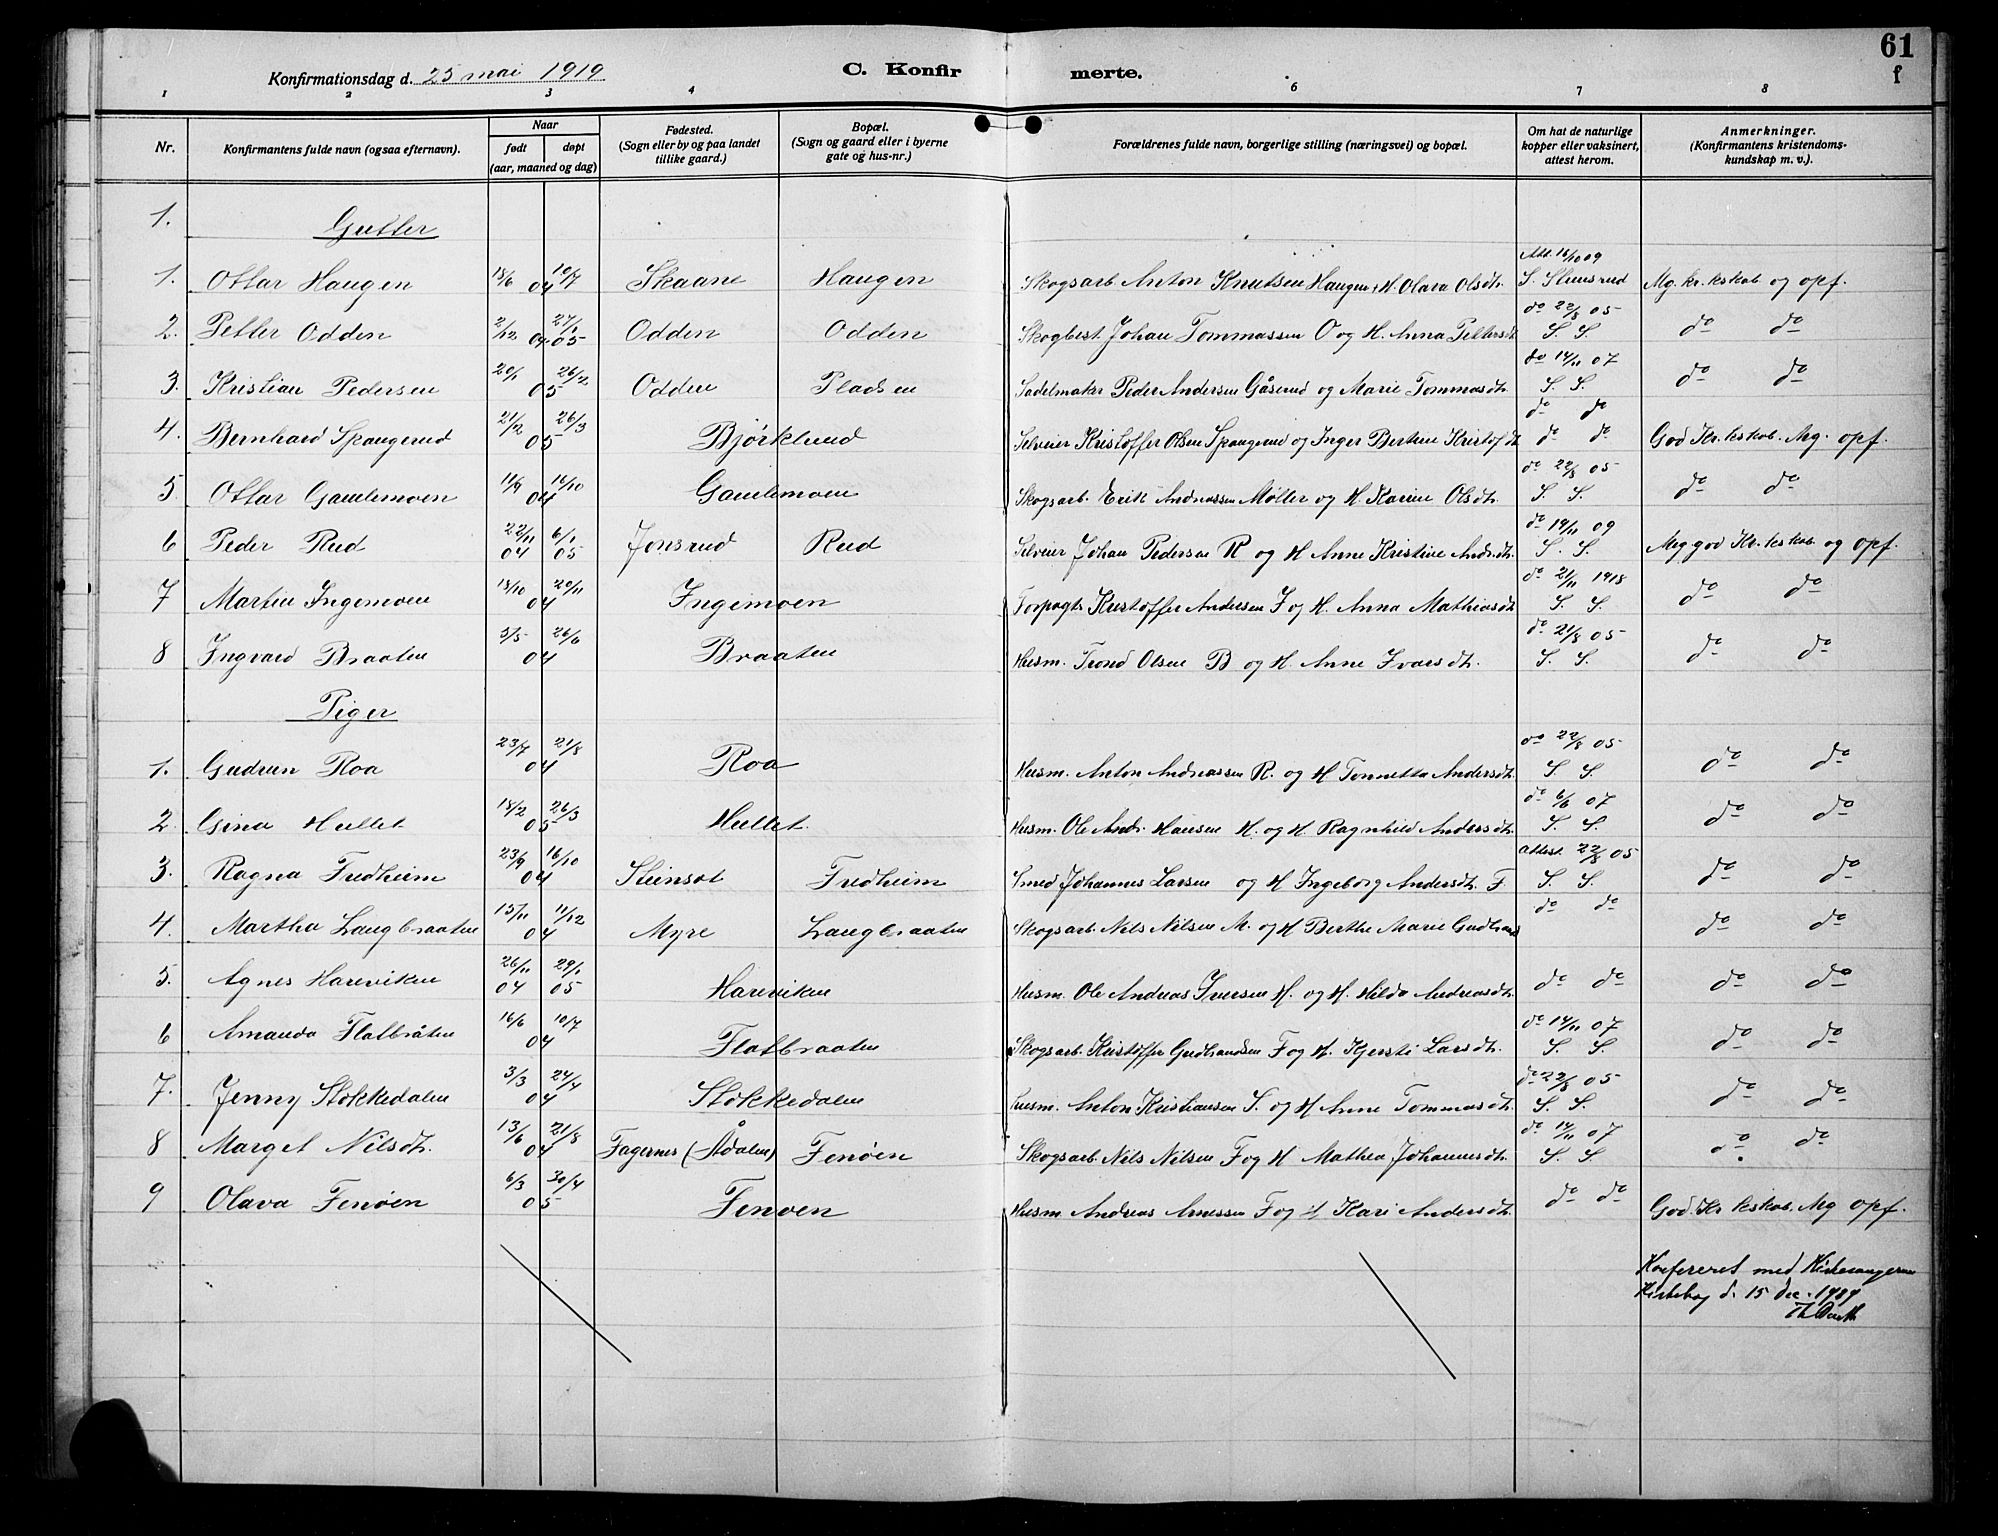 61
f
Konfirmationsdag d. 25 mai 1919 C. Konfirmerte.
1 2 3 4 6 7 8
Nr. Konfirmantens fulde navn (ogsaa efternavn). Naar født døpt (aar, maaned og dag) Fødested. (Sogn eller by og paa landet tillike gaard.) Bopæl. (Sogn og gaard eller i byerne gate og hus-nr.) Forældrenes fulde navn, borgerlige stilling (næringsvei) og bopæl. Om hat de naturlige kopper eller vaksinert, attest herom. Anmerkninger. (Konfirmantens kristendoms-kundskap m. v.).
1. Gutter
1. Ottar Haugen 18/6 04 10/7 Skaane Haugen Skogsarb. Anton Knutsen Haugen & H. Olava Olsdt. Att. 16/10 09 S. Stensrud Mg. kr. kskab og opf.
2. Petter Odden 2/12 04 27/1 05 Odden Odden Skogbest. Johan Tommassen O og H. Anna Pettersdt do 22/8 05 S. S. do do
3. Kristian Pedersen 20/1 05 26/2 Odden Pladsen Sadelmaker Peder Andersen Gåserud og Marie Tommasdt. do 14/11 07 S. S. do do
4. Bernhard Spangerud 21/2 05 26/3 Bjørklund Selveier Kristoffer Olsen Spangerud og Inger Berthine Kristofdt. do do do do God Kr. kskab. Mg. opf.
5 Ottar Gamlemoen 11/9 04 16/10 Gamlemoen Skogsarb. Erik Andreassen Møller og H. Karine Olsdt. do 22/8 05 S. S. do do
6 Peder Rud 22/11 04 6/1 05 Jonsrud Rud Selveier Johan Pedersen R og H Anne Kristine Andr.dt. do 14/11 09 S. S. Meg. god Kr. kskab og opf.
7 Martin Ingemoen 18/10 04 20/11 Ingemoen Forpagt. Kristoffer Andersen I og H. Anna Mathiasdt do 21/11 1918 S. S. do do
8 Ingvard Braaten 3/5 04 26/6 Braaten Husm. Trond Olsen B og H. Anne Ivarsdt. do 21/8 05 S. S. do do
Piger
1. Gudrun Roa 23/7 04 21/8 Roa Husm. Anton Andreassen R. og H Tonnetta Andersdt. do 22/8 05 S. S. do do
2 Gina Hullet 18/2 05 26/3 Hullet Husm. Ole Andr. Hansen H. og H. Ragnhild Andersdt. do 6/6 07 S. S. do do
3. Ragna Fredheim 23/9 04 16/10 Steinsæt Fredheim Smed Johannes Larsen og H Ingeborg Andersdt. F. attest 22/8 05 S. S. do do
4. Martha Langbraaten 15/11 04 11/12 Myre Langbraaten Skogsarb. Nils Nilsen M. og H Berthe Marie do do do do
5. Agnes Hareviken 26/11 04 29/1 05 Hareviken Husm. Ole Andreas Iversen H. og H. Hilda Andreasdt. do do do do
6 Amanda Flatbråten 16/6 04 10/7 Flatbraaten Skogsarb. Kristoffer Gudbrandsen F og H. Kjersti Larsdt. do 14/11 07 S. S. do do
7. Jenny Stokkedalen 3/3 04 24/4 Stokkedalen Husm. Anton Kristiansen S. og H Anne Tommasdt. do 22/8 05 S. S. do do
8 Marget Nilsdt. 13/6 04 21/8 Fagernes (Ådalen) Fenøen Skogsarb. Nils Nilsen F og H Mathea Johannesdt. do 14/11 07 S. S. do do
9 Olava Fenøen 6/3 05 30/4 Fenøen Husm. Andreas Arnessen F og H Kari Andersdt. do do God. Kr kskab. Mg opf.
Konfereret med Kirkesangerens
Kirkebog d. 15 dec. 1939